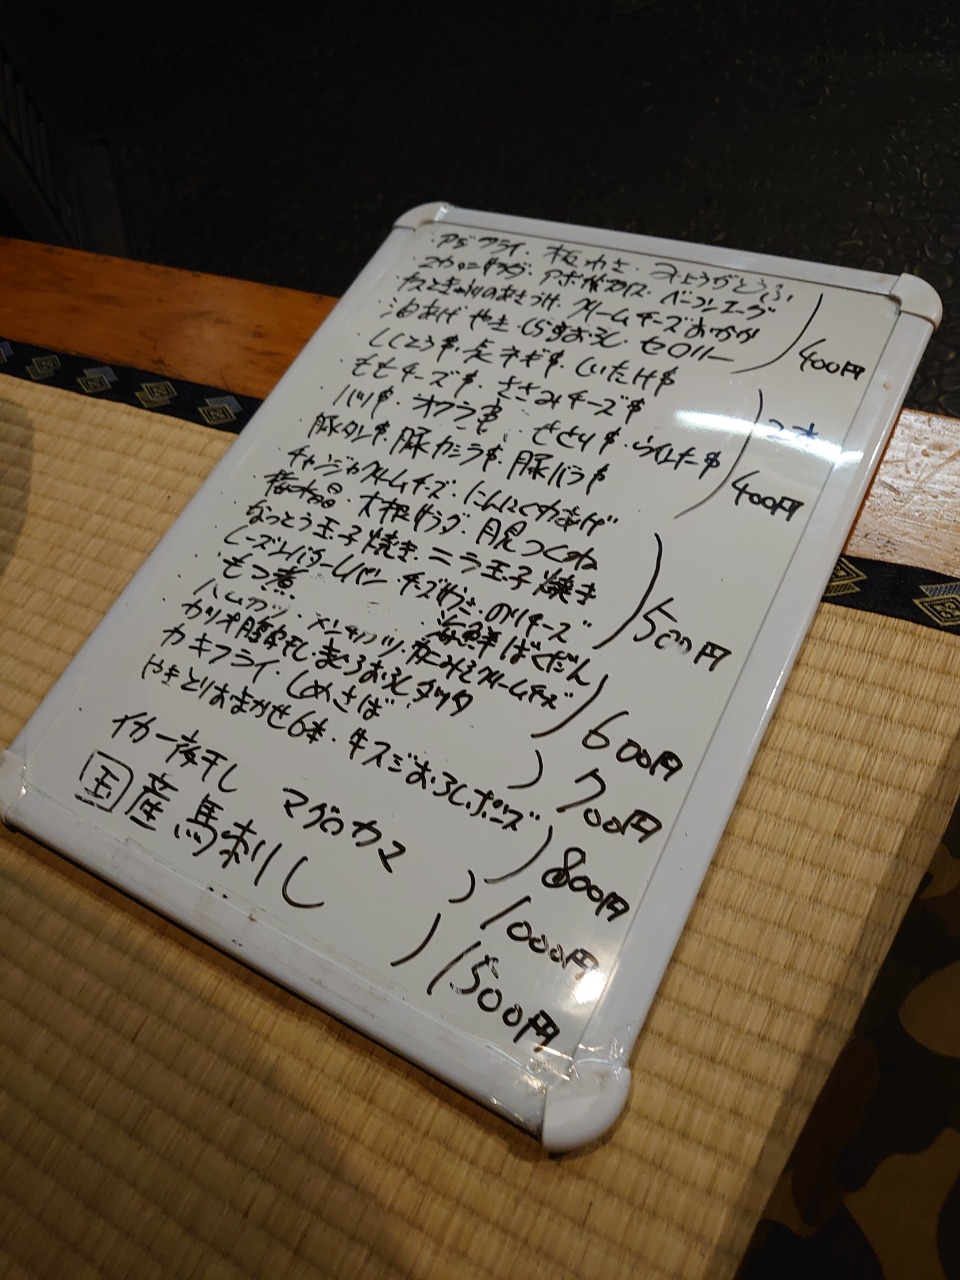 ・アジフライ・板わさ・みょうがとうふ
マカロニサラダ・アボカド・ベーコンエッグ
きゅうりのあさづけ・クリームチーズおかか
油あげやき・しらすおろし・セロリー
400円
ししとう串・長ネギ串・しいたけ串
ももチーズ串・ささみチーズ串
ハツ串・オクラ串・ささみ串
2本
豚タン串・豚カシラ串・豚バラ串
400円
チャンジャクリームチーズ・にんにくかあげ
梅水晶・大根サラダ・月見つくね
なっとう玉子焼き・ニラ玉子焼き
レーズンバター・チーズやき・のりチーズ
500円
・もつ煮 海鮮ばくだん
・ハムカツ・メンチカツ・かにみそクリームチーズ
600円
まぐろおろしタツタ
カキフライ・しめさば
700円
やきとりおまかせ6本・牛スジおろしポンズ
800円
イカ一夜干し マグロカマ
1000円
国産馬刺し
1500円